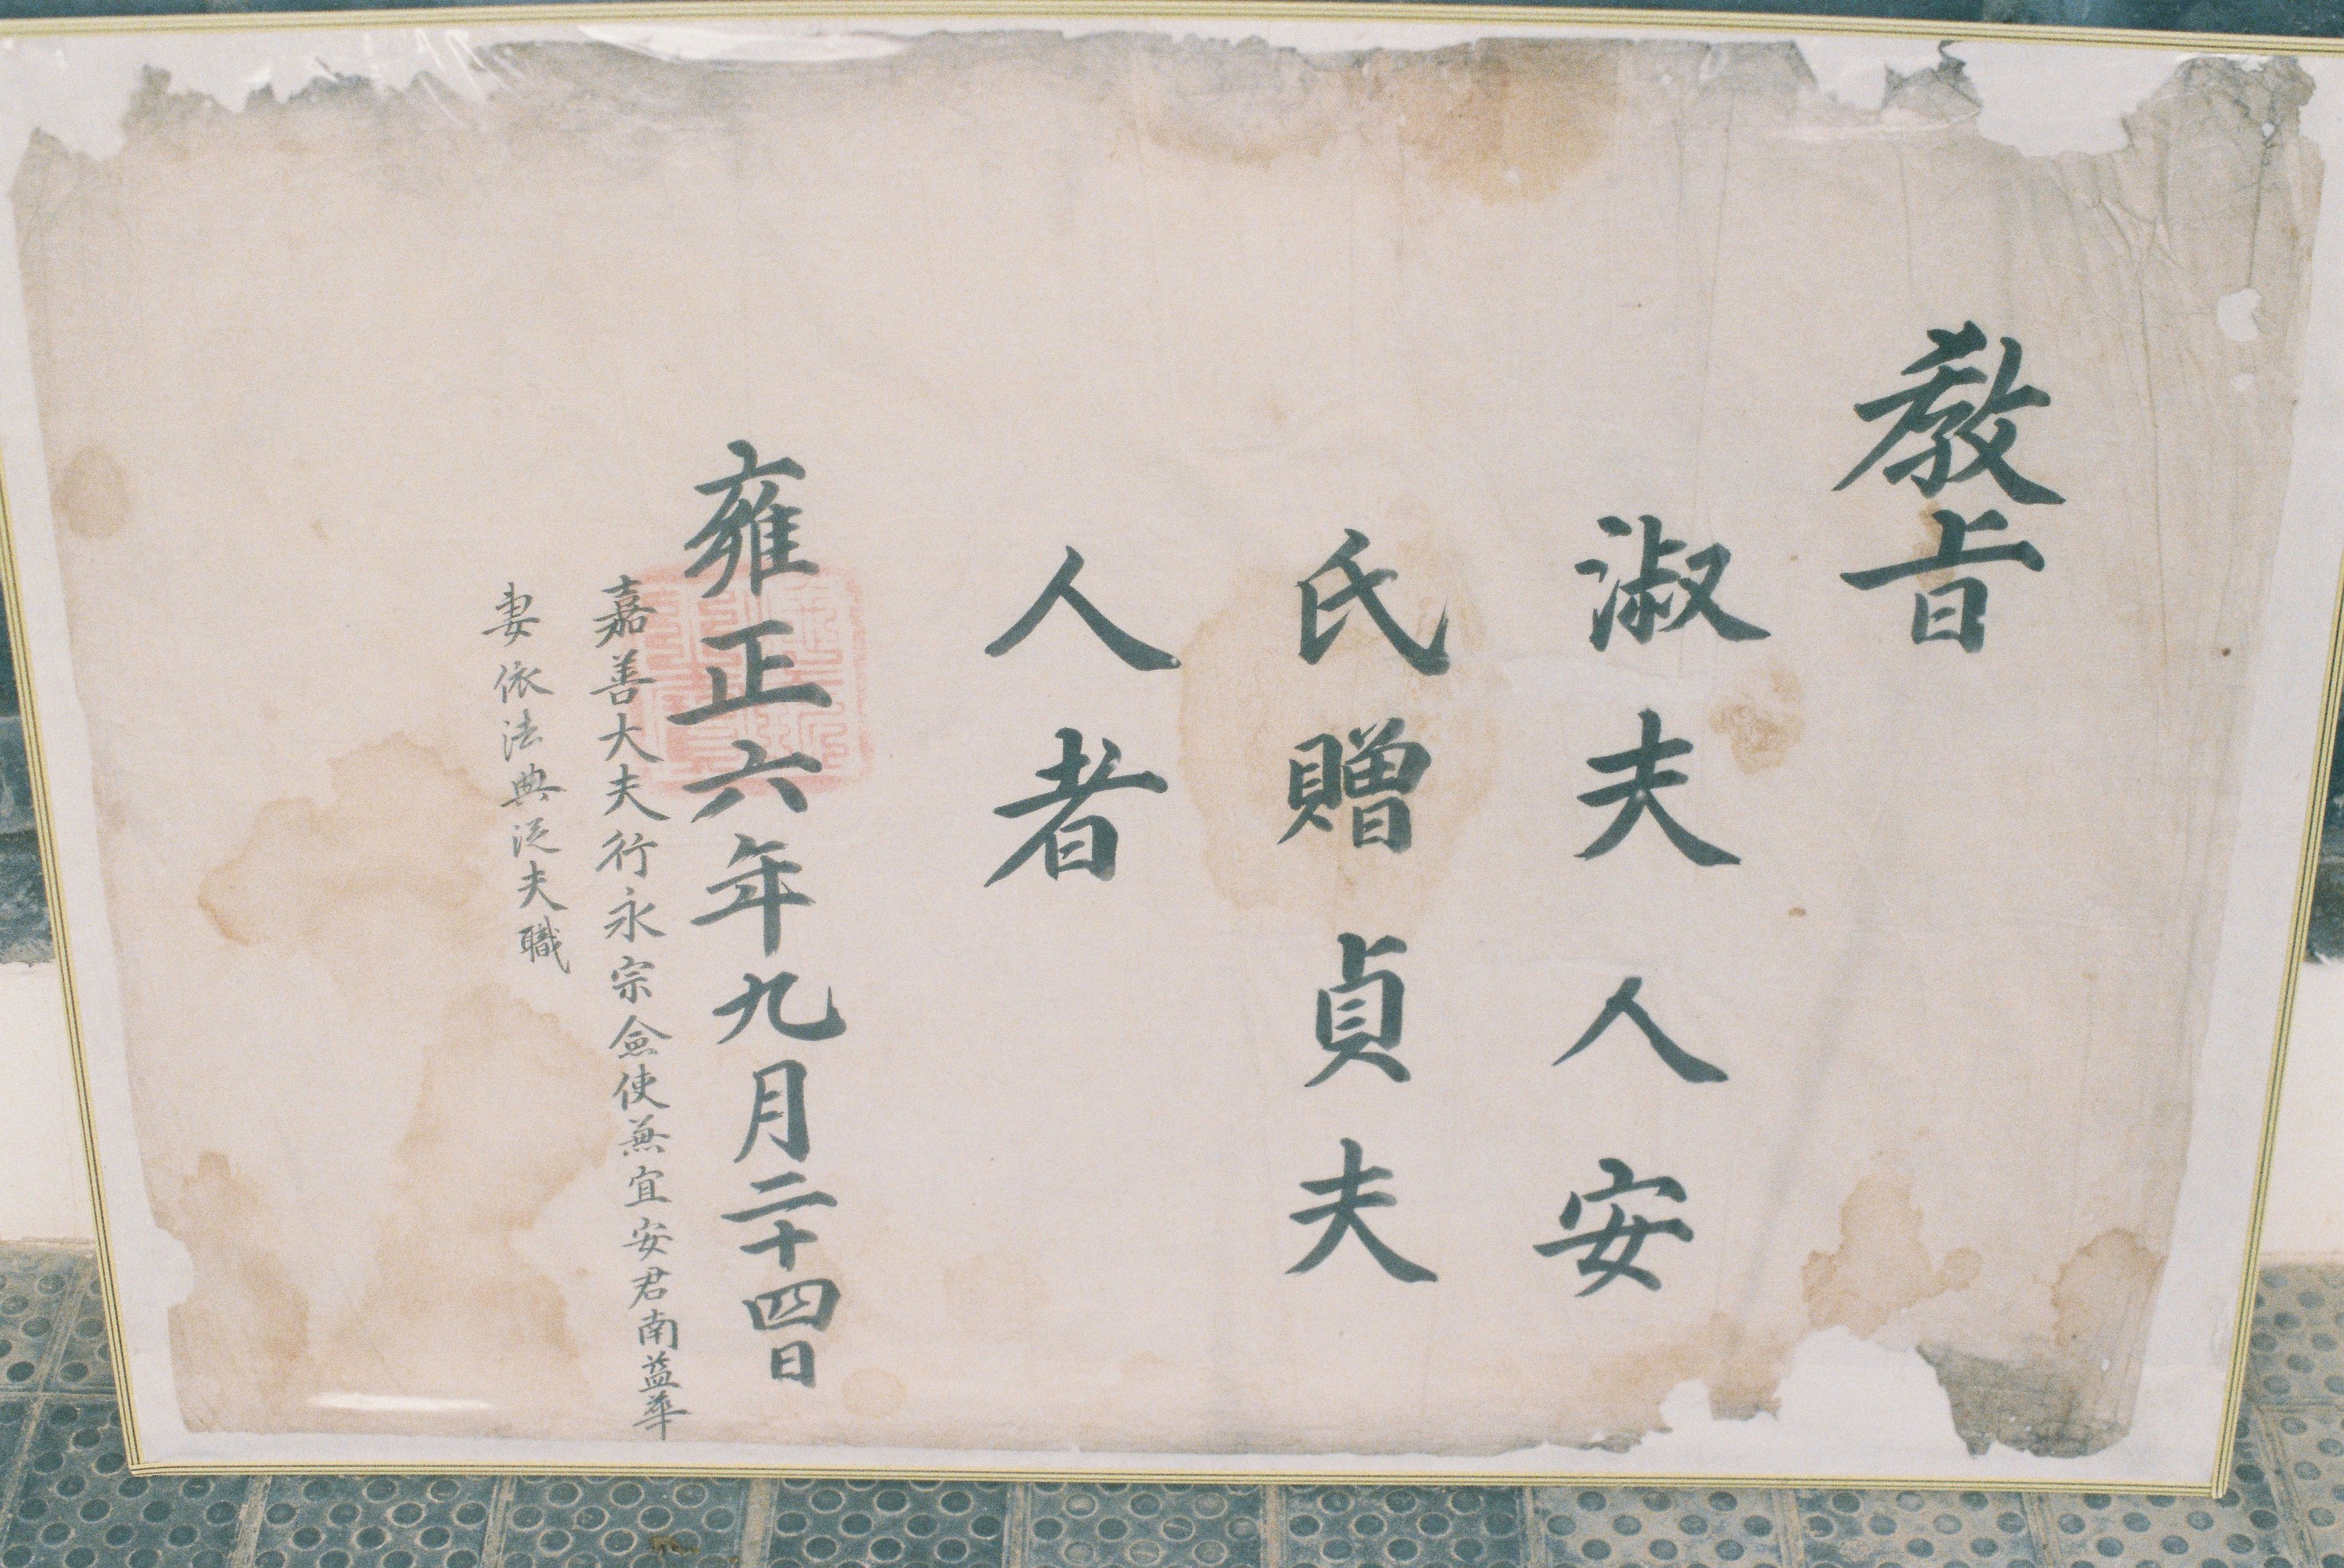 敎旨
淑夫人安
氏贈貞夫
人者
雍正六年九月二十四日
嘉善大夫行永宗僉使無宜安君南益華
妻依法典從夫職